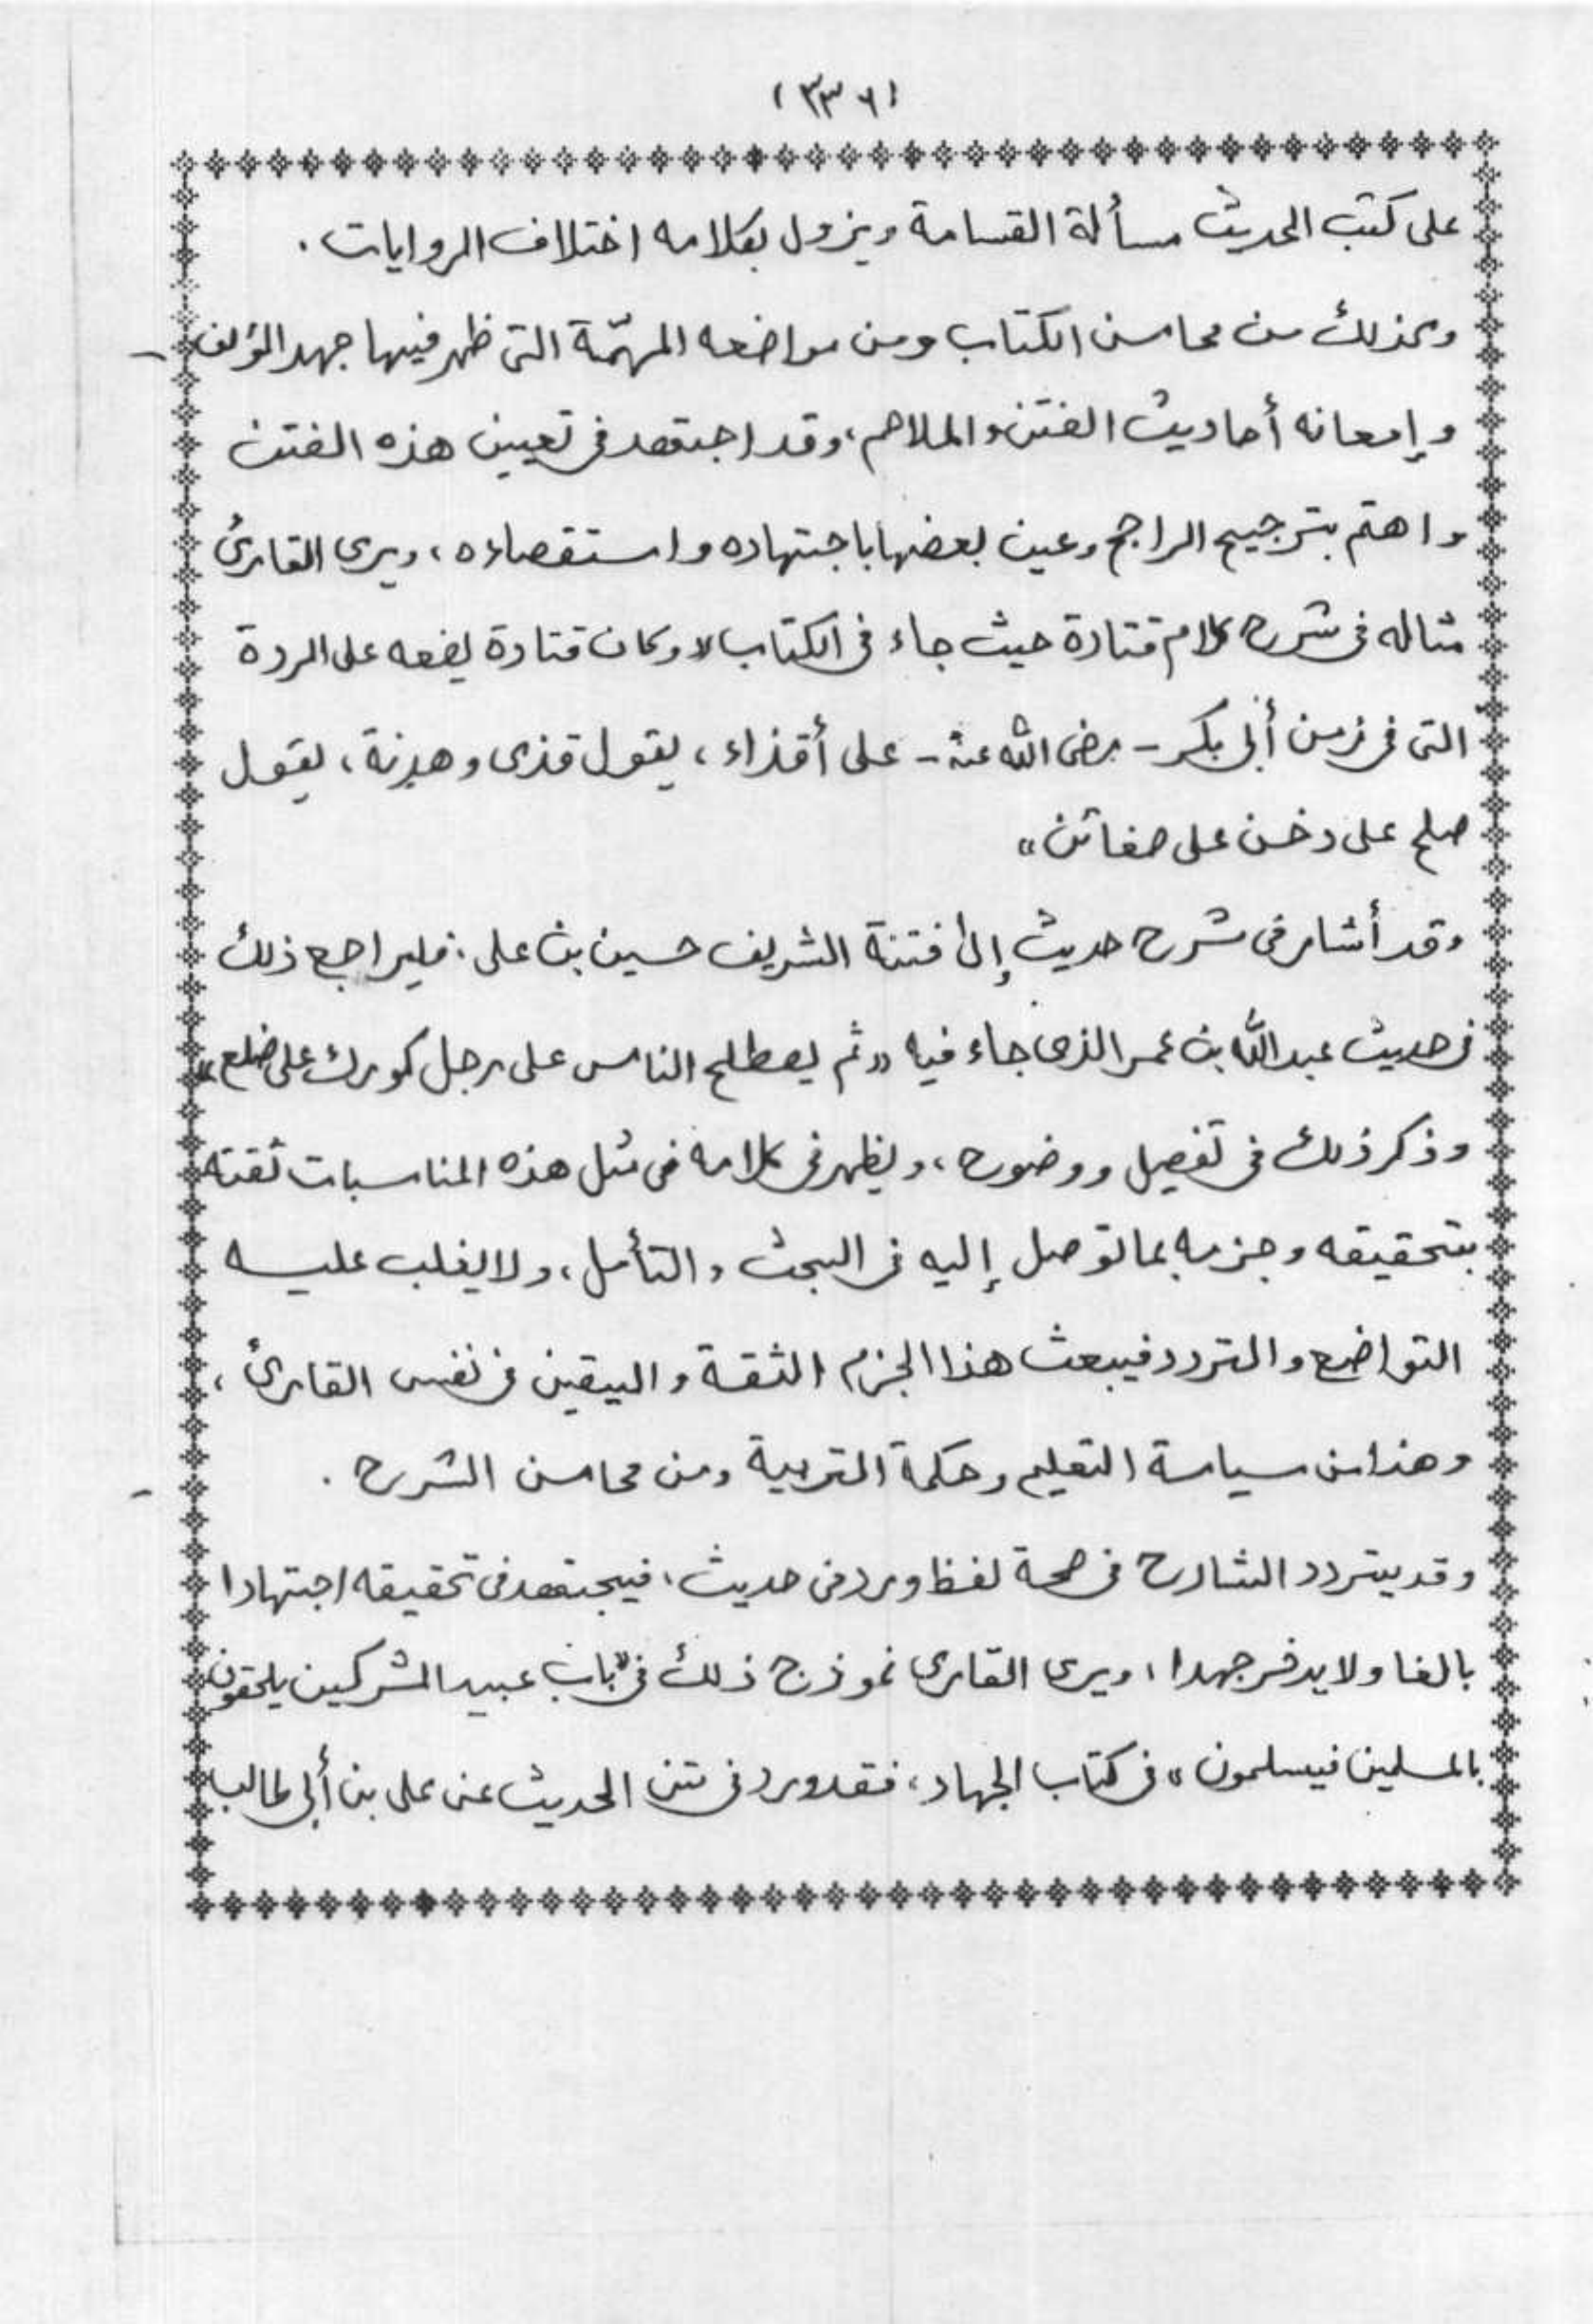 (٣٣٦)
على كتب الحديث مسألة القسامة ويزول بكلامه اختلاف الروايات .
وكذلك من محاسن الكتاب ومن مواضعه المهمّة التى ظهر فيها جهد المؤلف
وإمعانه أحاديث الفتن والملاحم، وقد اجتهد فى تعيين هذه الفتن
واهتم بترجيح الراجح وعين بعضها باجتهاده واستقصاءه، ويرى القارئ
مثاله فى شرح كلام قتادة حيث جاء فى الكتاب « وكان قتادة يضعه على الردة
التى فى زمن أبى بكر - رضى الله عنه - على أقذاء، يقول قذى وهدنة، يقول
صلح على دخن على ضغائن »
وقد أشار فى شرح حديث إلى فتنة الشريف حسين بن على، فليراجع ذلك
فى حديث عبد الله بن عمر الذى جاء فيه « ثم يصطلح الناس على رجل كورك على ضلع »
وذكر ذلك فى تفصيل ووضوح، ويظهر فى كلامه فى مثل هذه المناسبات ثقته
بتحقيقه وجزمه بما توصل إليه فى البحث والتأمل، ولا يغلب عليه
التواضع والتردد فيبعث هذا الجزم الثقة واليقين فى نفس القارئ،
وهذا من سياسة التعليم وحكمة التربية ومن محاسن الشرح .
وقد يتردد الشارح فى صحة لفظ ورد فى حديث، فيجتهد فى تحقيقه اجتهادا
بالغا ولا يدخر جهدا، ويرى القارى نموذج ذلك فى "باب عبيد المشركين يلحقون
بالمسلمين فيسلمون" فى كتاب الجهاد، فقد ورد فى متن الحديث عن على بن أبى طالب